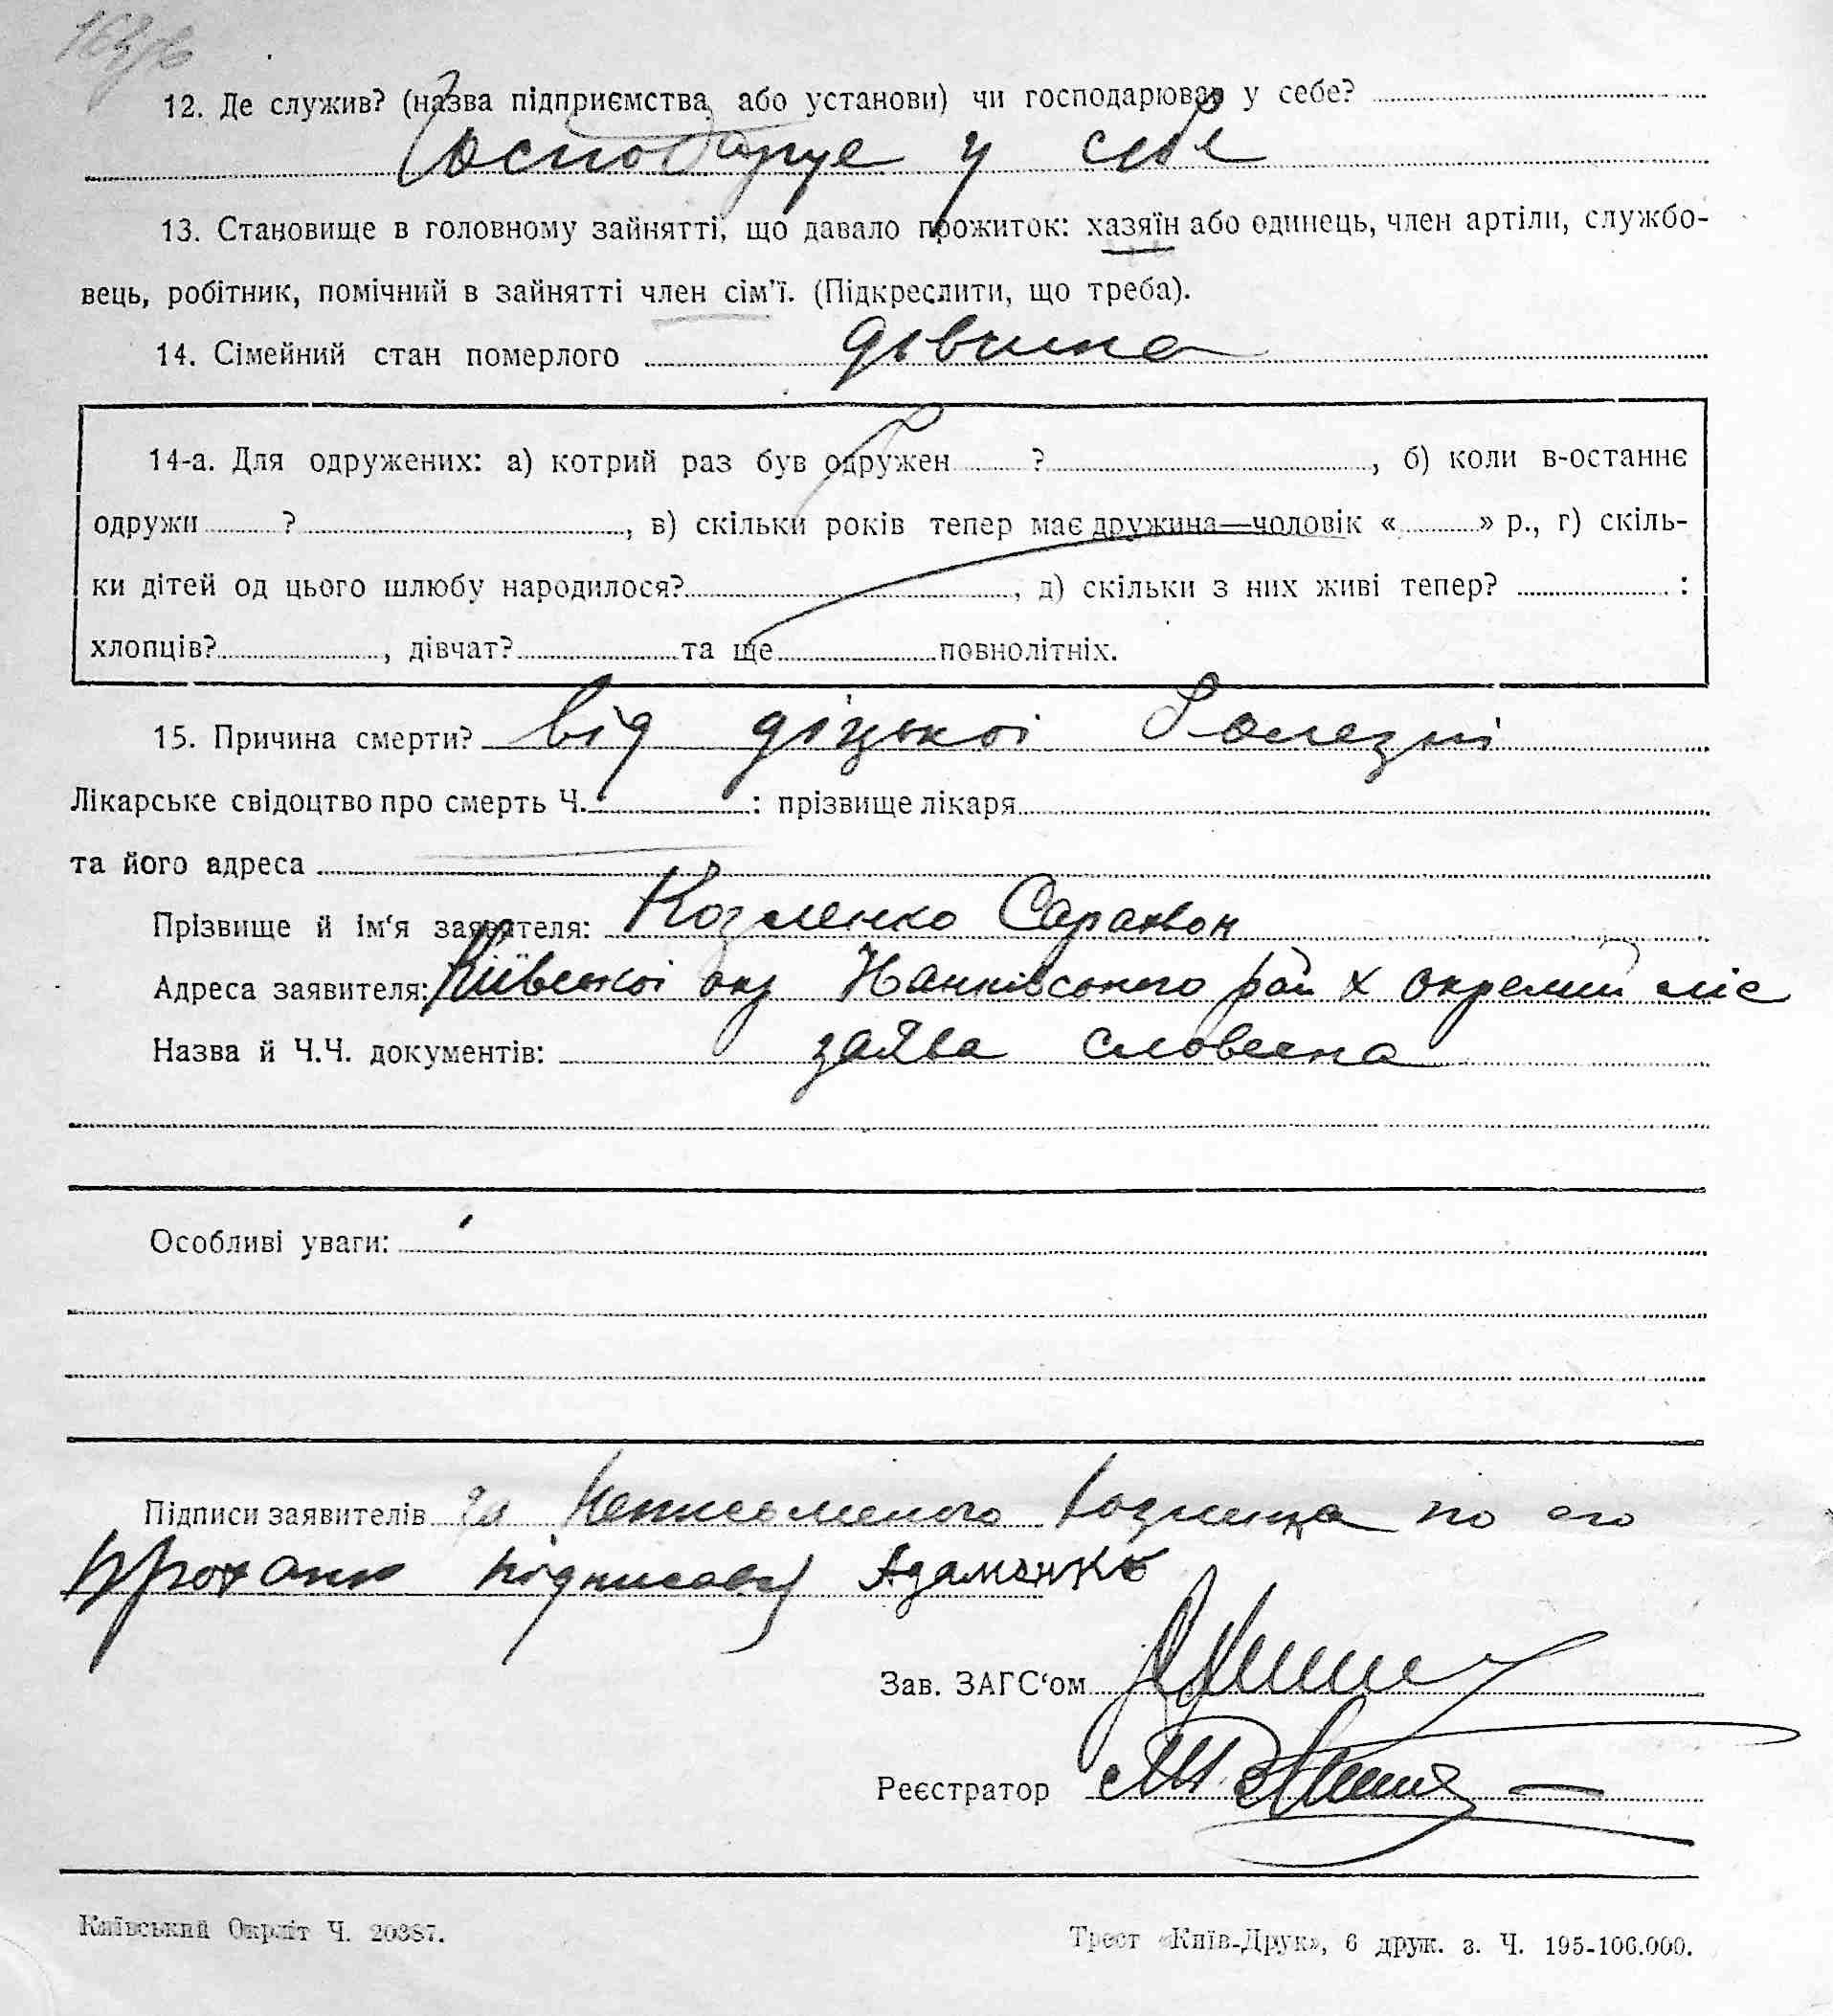 12. Де служив? (назва підприємства або установи) чи господарював у себе?
Господарує у себе
13. Становище в головному зайнятті, що давало прожиток: хазяїн або одинець, член артіли, службо-
вець, робітник, помічний в зайнятті член сім'ї. (Підкреслити, що треба).
14. Сімейний стан померлого дівчина
14-а. Для одружених: а) котрий раз був одружен ? , б) коли в-останнє
одружи ? , в) скільки років тепер має дружина—чоловік « » р., г) скіль-
ки дітей од цього шлюбу народилося? , д) скільки з них живі тепер? :
хлопців? , дівчат? та ще повнолітніх.
15. Причина смерти? від діцької болезні
Лікарське свідоцтво про смерть Ч. : прізвище лікаря
та його адреса
Прізвище й ім'я заявителя: Козленко Сарапион
Адреса заявителя: Київської окр Іванківського рай х окремий ліс
Назва й Ч.Ч. документів: заява словесна
Особливі уваги:
Підписи заявителів за неписьменого по его
проханю підписавсь Адаменко
Зав. ЗАГС'ом
Реєстратор
Київський Окрліт Ч. 20387.
Трест «Київ-Друк», 6 друк. з. Ч. 195-100.000.